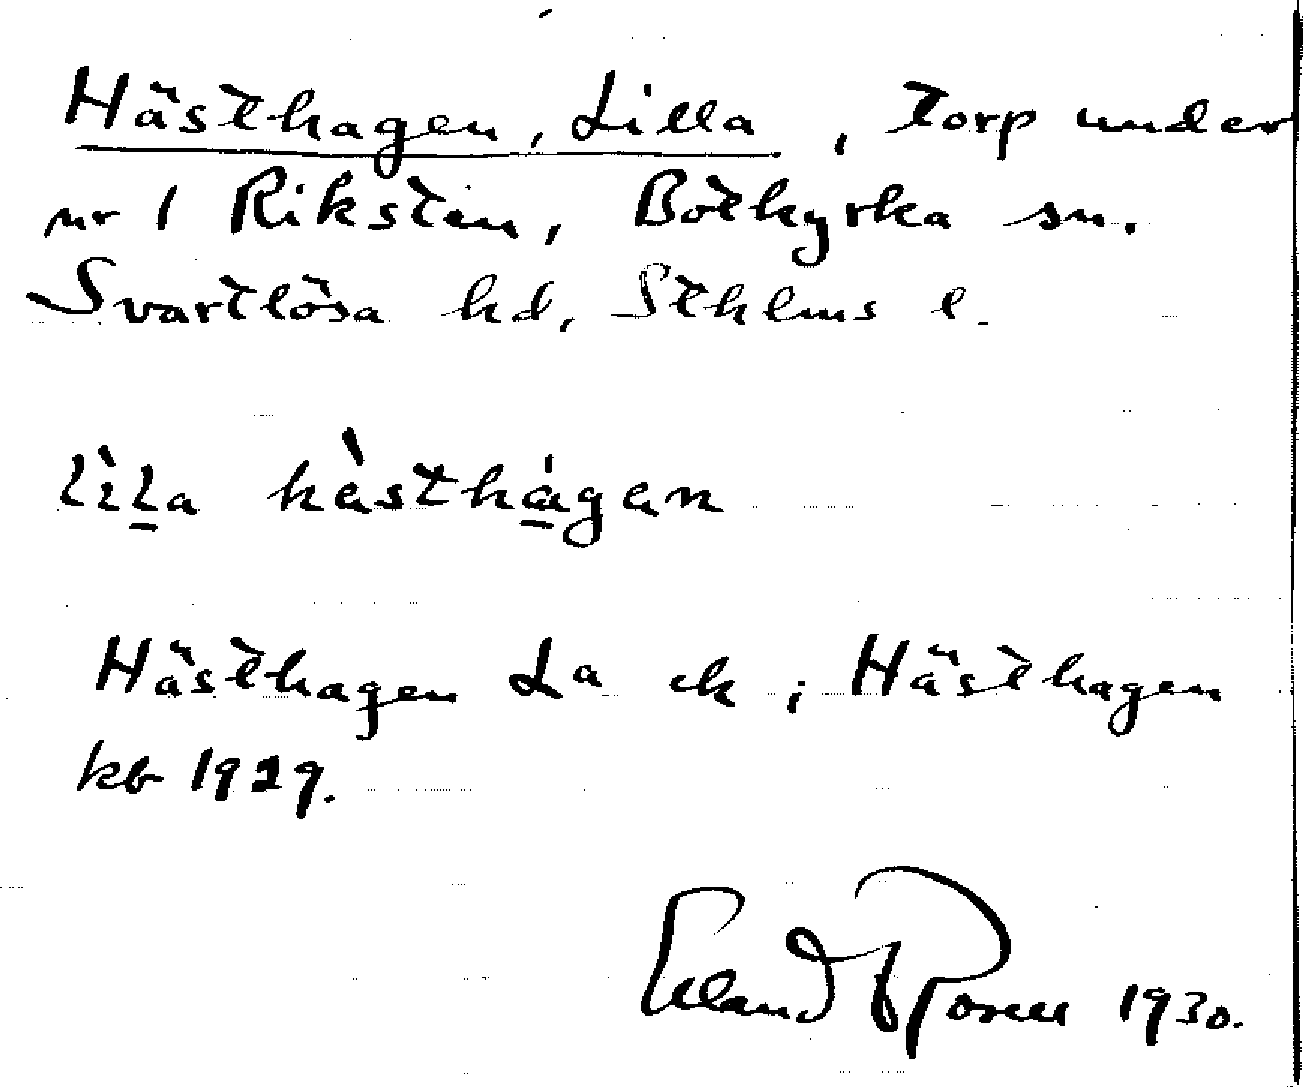 Hästhagen, Lilla, torp under
nr 1 Riksten, Botkyrka sn.
Svartlösa hd, Sthlms l.
lìla hàsthágan
Hästhagen La ek; Hästhagen
kb 1929.
Erland Rosell 1930.